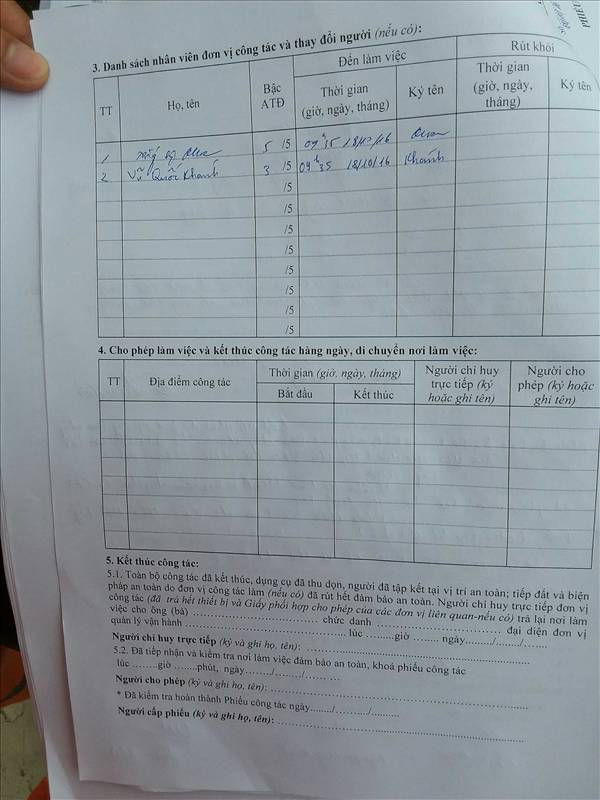 PHIẾU
3. Danh sách nhân viên đơn vị công tác và thay đổi người (nếu có):
TT Họ, tên Bậc ATĐ Đến làm việc Rút khỏi
Thời gian (giờ, ngày, tháng) Ký tên Thời gian (giờ, ngày, tháng) Ký tên
1 5 /5 18/10/16
2 Vũ Quốc Khanh 3 /5 09h35 18/10/16 Khanh
/5
/5
/5
/5
/5
/5
/5
/5
4. Cho phép làm việc và kết thúc công tác hàng ngày, di chuyển nơi làm việc:
TT Địa điểm công tác Thời gian (giờ, ngày, tháng) Người chỉ huy trực tiếp (ký hoặc ghi tên) Người cho phép (ký hoặc ghi tên)
Bắt đầu Kết thúc
5. Kết thúc công tác:
5.1. Toàn bộ công tác đã kết thúc, dụng cụ đã thu dọn, người đã tập kết tại vị trí an toàn; tiếp đất và biện
pháp an toàn do đơn vị công tác làm (nếu có) đã rút hết đảm bảo an toàn. Người chỉ huy trực tiếp đơn vị
công tác (đã trả hết thiết bị và Giấy phối hợp cho phép của các đơn vị liên quan-nếu có) trả lại nơi làm
việc cho ông (bà) ........ chức danh ........ đại diện đơn vị
quản lý vận hành ........ lúc ........giờ ........ ngày......../......../........
Người chỉ huy trực tiếp (ký và ghi họ, tên): ........
5.2. Đã tiếp nhận và kiểm tra nơi làm việc đảm bảo an toàn, khoá phiếu công tác
lúc ........giờ ........phút, ngày......../......../........
Người cho phép (ký và ghi họ, tên): ........
* Đã kiểm tra hoàn thành Phiếu công tác ngày......../......../........
Người cấp phiếu (ký và ghi họ, tên): ........